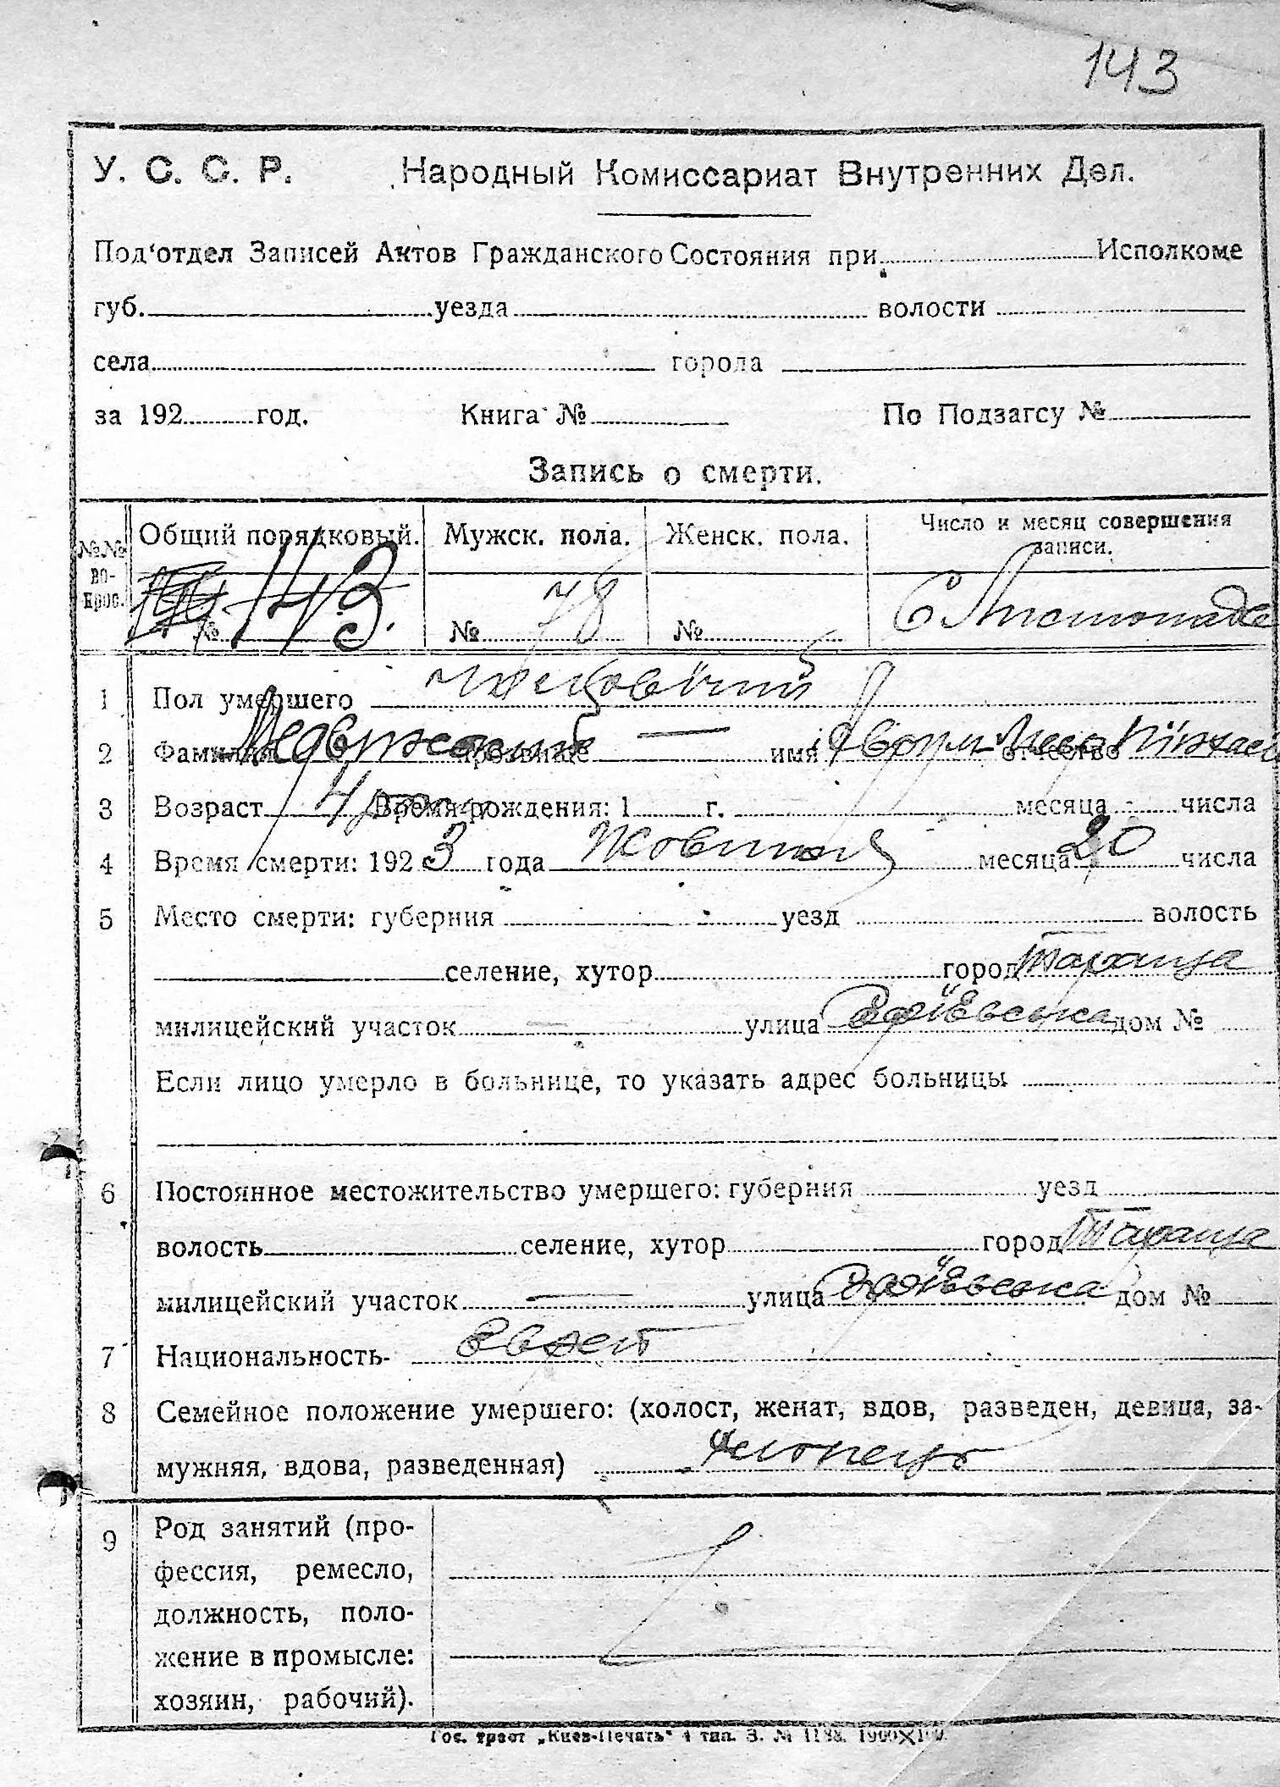 143
У. С. С. Р. Народный Комиссариат Внутренних Дел.
Под'отдел Записей Актов Гражданского Состояния при Исполкоме
губ. уезда волости
села города
за 192 год. Книга № По Подзагсу №
Запись о смерти.
№№ во-прос. Общий порядковый. Мужск. пола. Женск. пола. Число и месяц совершения записи.
№ 143. № 78 № 6 Листопада
1 Пол умершего чоловічий
2 Фамилия прозвище — имя Аврум отчество
3 Возраст 4 Время рождения: 1 г. месяца числа
4 Время смерти: 1923 года Жовтня месяца 20 числа
5 Место смерти: губерния уезд волость
селение, хутор город Тараща
милицейский участок — улица дом №
Если лицо умерло в больнице, то указать адрес больницы
6 Постоянное местожительство умершего: губерния уезд
волость селение, хутор город Тараща
милицейский участок — улица дом №
7 Национальность- Еврей
8 Семейное положение умершего: (холост, женат, вдов, разведен, девица, за-
мужняя, вдова, разведенная) хлопець
9 Род занятий (про-
фессия, ремесло,
должность, поло-
жение в промысле:
хозяин, рабочий).
Гос. трест „Киев-Печать" 4 тип. З. № 1188.